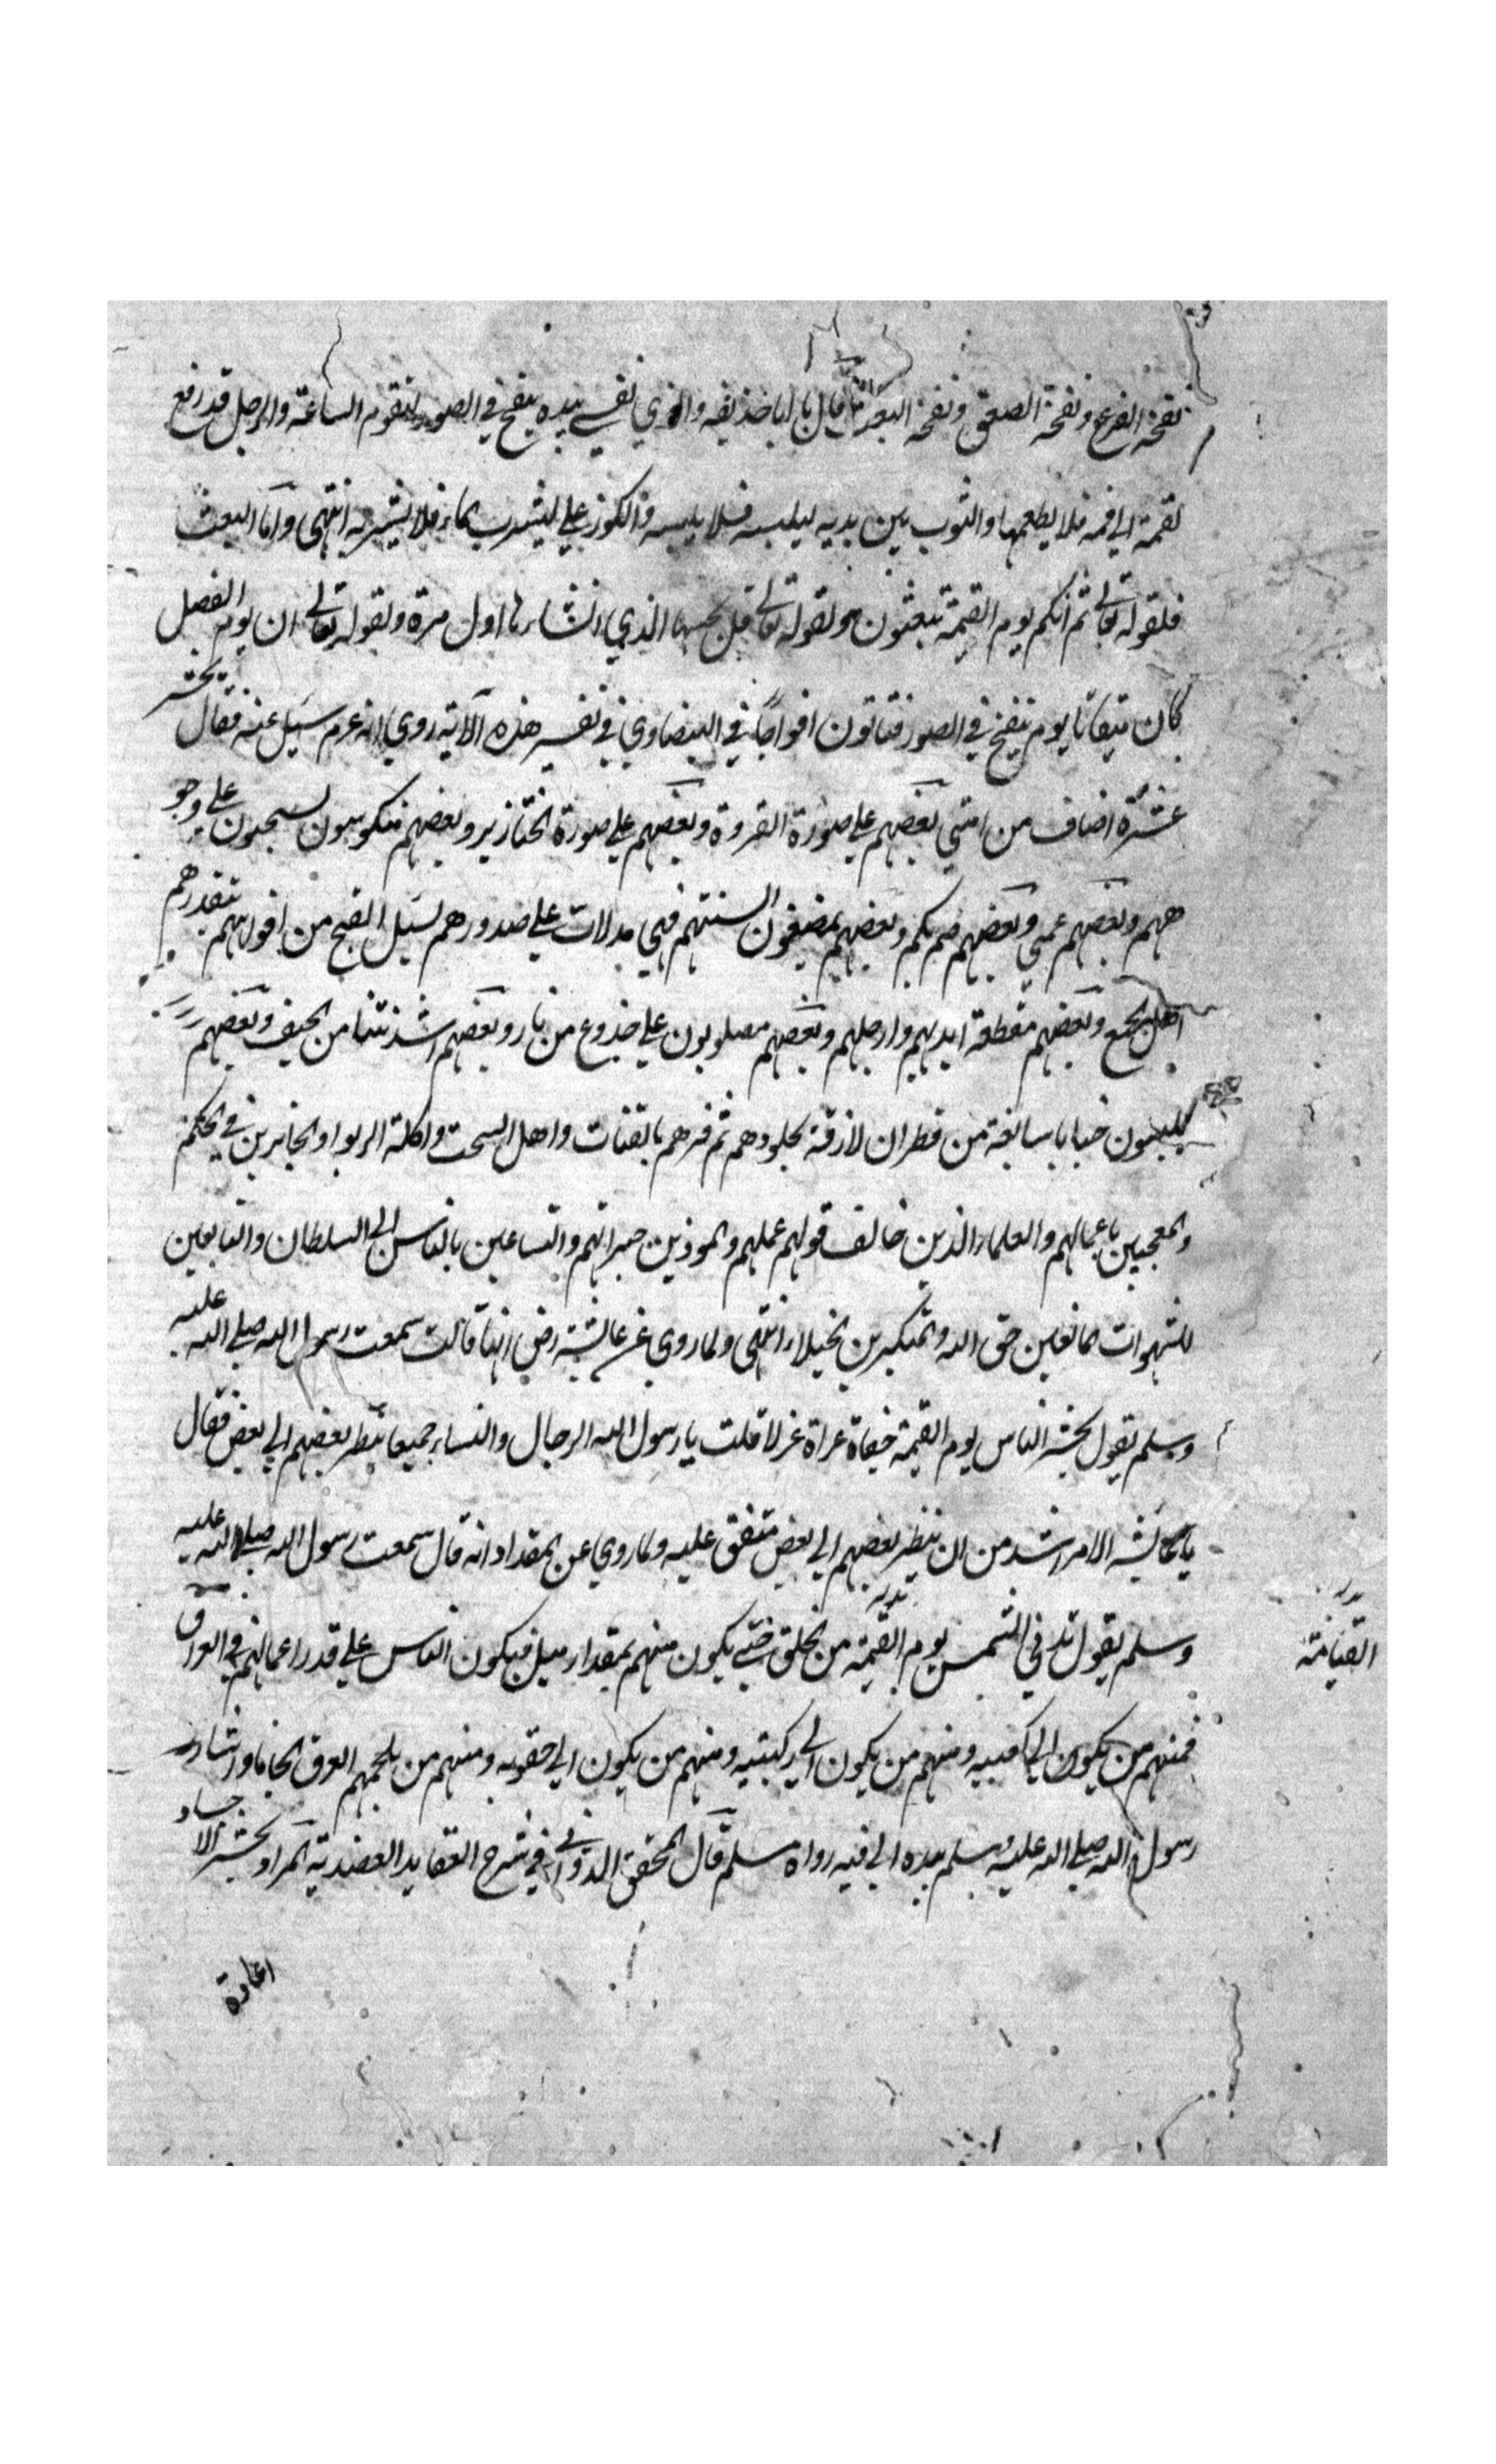 نفخة الفزع ونفخة الصعق ونفخة البعث قال يا ابا حذيفه والذي نفسي بيده ينفخ في الصور لتقوم الساعة والرجل قد رفع
لقمة الى فمه فلا يطعمها والثوب بين يديه ليلبسه فلا يلبسه والكوز على ليشرب الماء فلا يشربه انتهى واما البعث
فلقوله تعالى ثم انكم يوم القيمة تبعثون ولقوله تعالى قل يحييها الذي انشاءها اول مرة ولقوله تعالى ان يوم الفصل
كان ميقاتا يوم ينفخ في الصور فتاتون افواجا في البيضاوي في تفسير هذه الآية روي انه عم سئل عنه فقال يحشر
عشرة اصناف من امتي بعضهم على صورة القردة وبعضهم على صورة الخنازير وبعضهم منكوسون يسحبون على وجو
ههم وبعضهم عمي وبعضهم صم بكم وبعضهم يمضغون السنتهم فهي مدلات على صدورهم يسيل القيح من افواههم يتقذرهم
اهل الجمع وبعضهم مقطعة ايديهم وارجلهم وبعضهم مصلوبون على جذوع من نار وبعضهم اشد نتنا من الجيف وبعضهم
يلبسون جبابا سابغة من قطران لازقة بجلودهم ثم فسرهم بالقتات واهل السحت واكلة الربوا والجايرين في الحكم
والمعجبين باعمالهم والعلماء الذين خالف قولهم عملهم والموذين جيرانهم والساعين بالناس الى السلطان والتابعين
للشهوات المانعين حق الله والمتكبرين الخيلاء انتهى ولما روي عن عائشة رضي الله عنها قالت سمعت رسول الله صلى الله عليه
وسلم يقول يحشر الناس يوم القيمة حفاة عراة غرلا قلت يا رسول الله الرجال والنساء جميعا ينظر بعضهم الى بعض فقال
يا عائشة الامر اشد من ان ينظر بعضهم الى بعض متفق عليه ولما روي عن المقداد انه قال سمعت رسول الله صلى الله عليه
وسلم يقول تدني الشمس يوم القيمة من الخلق حتى يكون منهم بمقدار ميل فيكون الناس على قدر اعمالهم في العرق
القيامة
فمنهم من يكون الى كعبيه ومنهم من يكون الى ركبتيه ومنهم من يكون الى حقويه ومنهم من يلجمهم العرق الجاما واشار
رسول الله صلى الله عليه وسلم بيده الى فيه رواه مسلم قال المحقق الدواني في شرح العقايد العضدية المراد بحشر الاجساد
اعادة